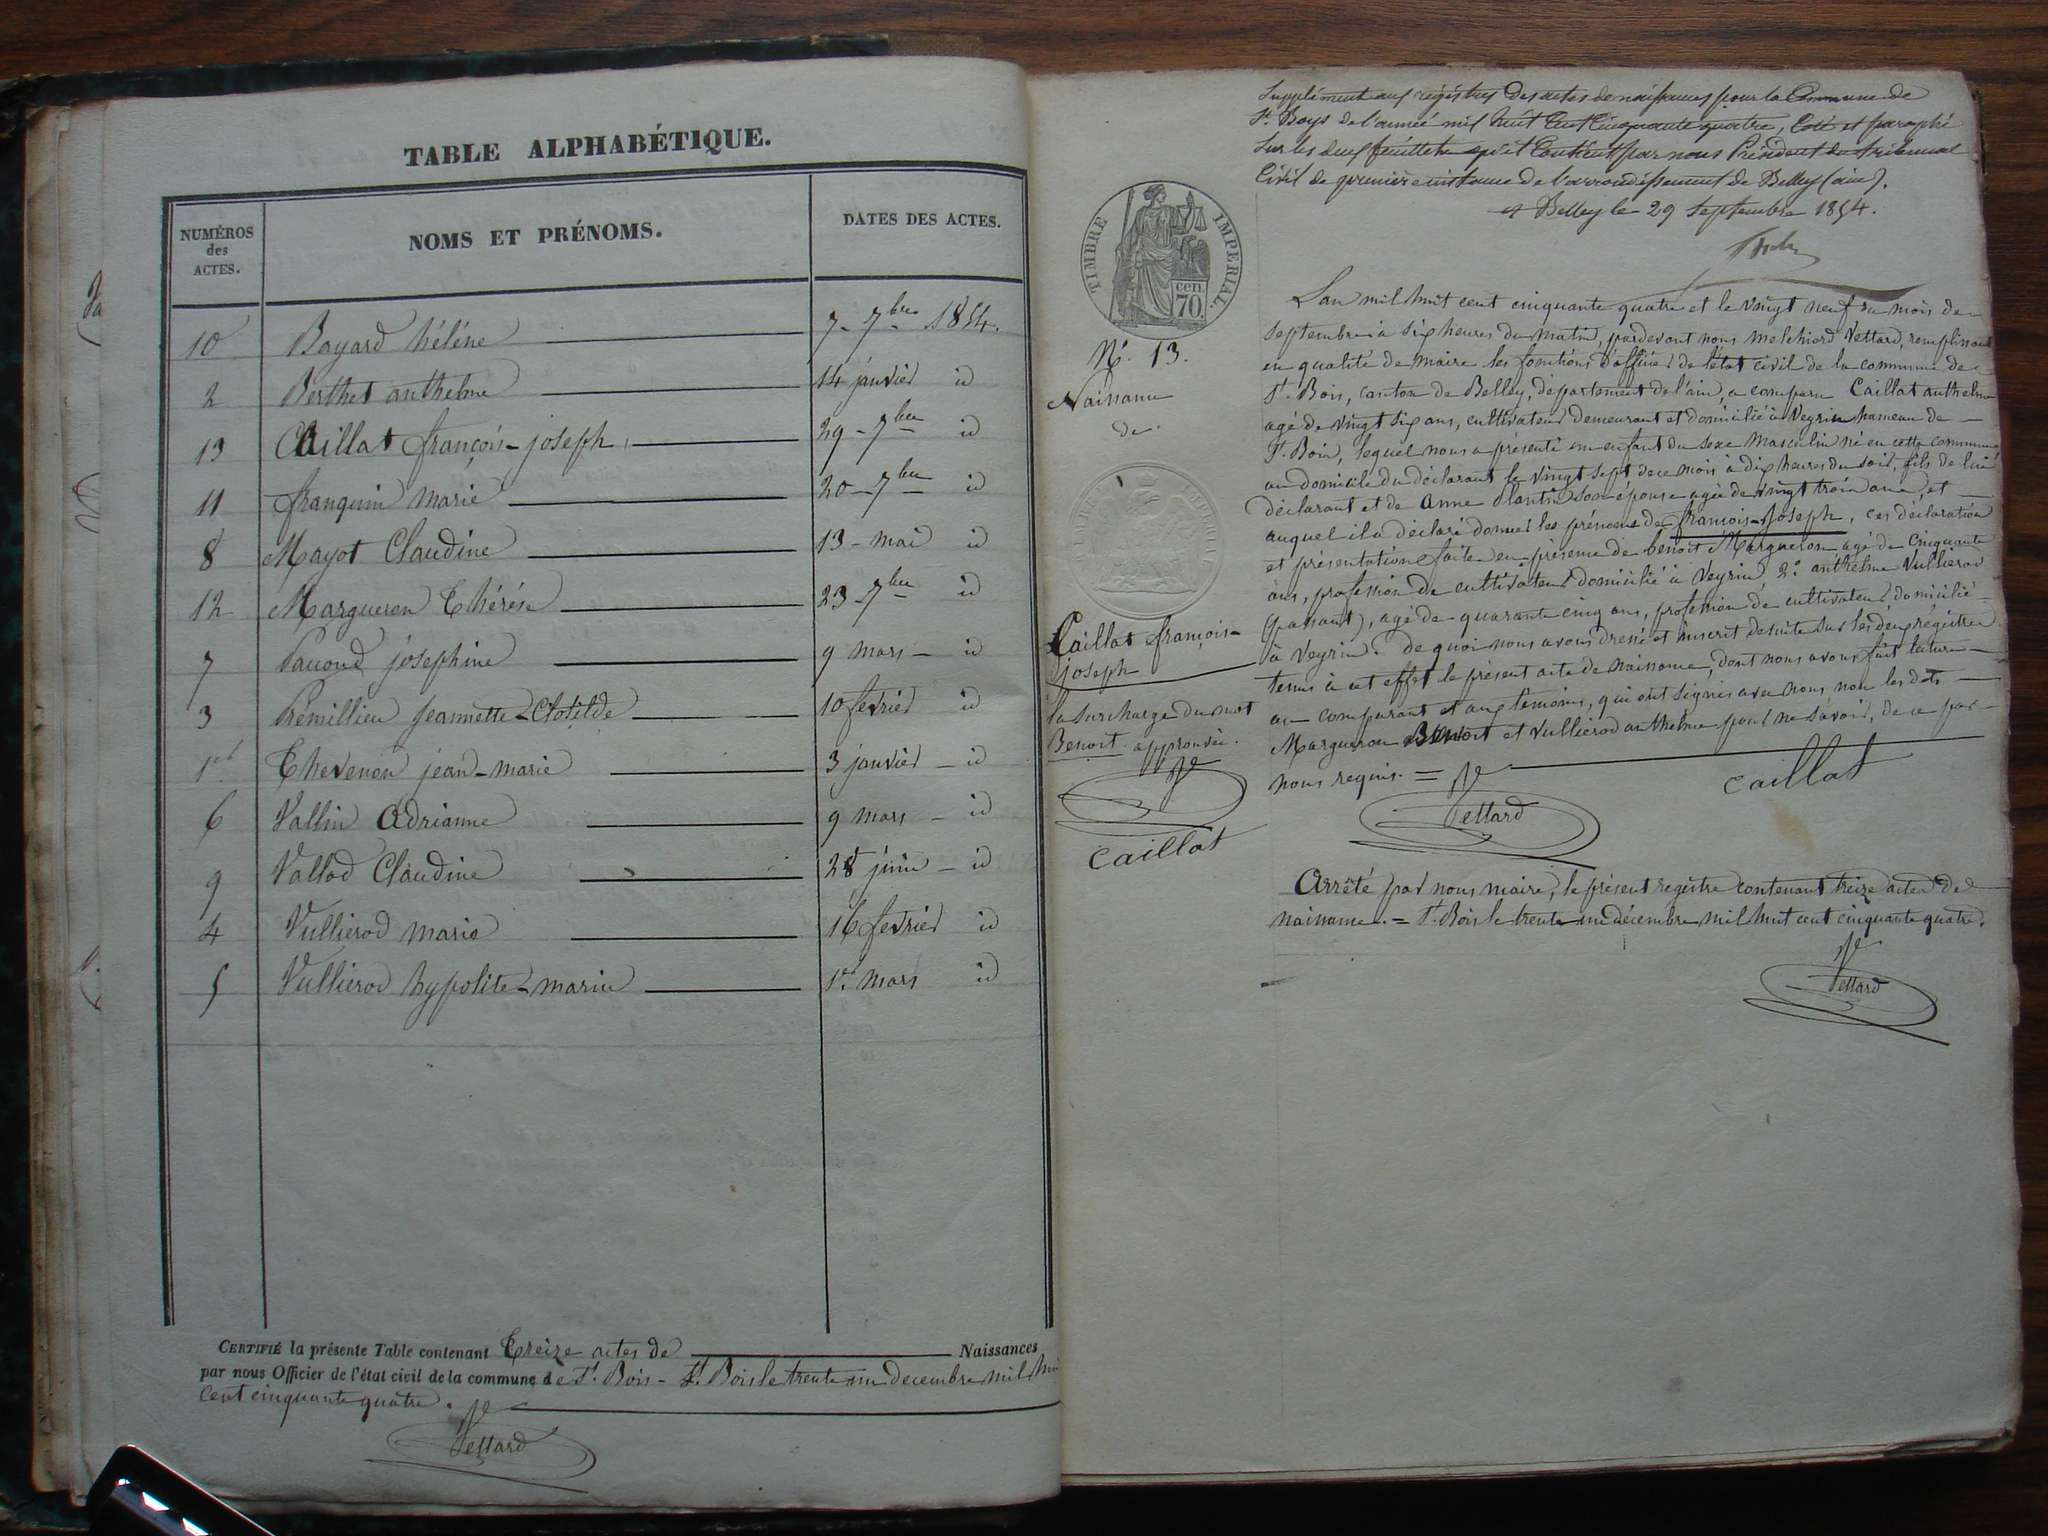 TABLE ALPHABÉTIQUE.
NUMÉROS des ACTES. NOMS ET PRÉNOMS. DATES DES ACTES.
10 Bayard hélène 7 - 7bre 1854.
2 Berthet anthelme 14 janvier id
13 Caillat françois-joseph 29 - 7bre id
11 franquin marie 20 - 7bre id
8 Mayot Claudine 13 - mai id
12 Margueron Thérése 23 - 7bre id
7 josephine 9 mars - id
3 Prémillieu Jeannette-Clotilde 10 fevrier id
1er Thevenon jean-marie 3 janvier - id
6 Vallin Adrianne 9 mars - id
9 Vallod Claudine 28 juin - id
4 Vullierod marie 16 fevrier id
5 Vullierod hypolite-marin 1er mars id
CERTIFIÉ la présente Table contenant Treize actes de Naissances
par nous Officier de l'état civil de la commune de St. Bois - St. Bois le trente un decembre mil hui
cent cinquante quatre.
Vettard
Supplément aux registres des actes de naissances pour la Commune de
St. Boys de l'année mil huit cent cinquante quatre, Coté et paraphé
Sur les deux feuillets qu'il Contient par nous Président du tribunal
Civil de première instance de l'arrondissement de Belley (ain).
à Belley le 29 septembre 1854.
TIMBRE IMPERIAL.
cen. 70.
N°. 13.
Naissance
de
Caillat françois-
joseph
la surcharge du mot
Benoit approuvée.
V
Caillat
L'an mil huit cent cinquante quatre et le vingt neuf du mois de
septembre à six heures du matin, pardevant nous melchiord Vettard, remplissant
en qualité de maire les fonctions d'officier de l'état civil de la commune de
St. Bois, canton de Belley, departement de l'ain, a comparu Caillat anthelme
agé de vingt six ans, cultivateur demeurant et domicilié à Veyrin hameau de
St. Bois, lequel nous a présenté un enfant du sexe masculin né en cette commune
au domicile du déclarant le vingt sept de ce mois à dix heures du soir, fils de lui
déclarant et de anne son épouse agée de vingt trois ans, et
auquel il a déclaré donner les prénoms de françois-Joseph, ces déclaration
et présentation faite en présence de benoit Margueron agé de cinquante
ans, profession de cultivateur domicilié à Veyrin, 2°. anthelme Vullierod
(passant), agé de quarante cinq ans, profession de cultivateur domicilié
à Veyrin. de quoi nous avons dressé et inscrit desuite sur les deux régistres
tenus à cet effet le présent acte de naissance, dont nous avons fait lecture
au comparant et aux témoins, qui ont signés avec nous non les dits
Margueron Benoit et Vullierod anthelme pour ne savoir, de ce par
nous requis. =
V
Vettard
Caillat
Arrêté par nous maire, le présent registre contenant treize actes de
naissance. = St. Bois le trente un décembre mil huit cent cinquante quatre.
V
Vettard